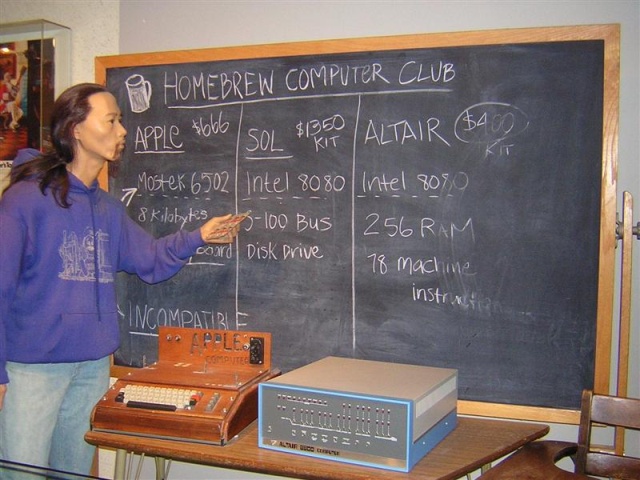 HOMEBREW COMPUTER CLUB
APPLE $666
Mostek 6502
8 Kilobytes
board
INCOMPATIBLE
SOL $1350
KIT
Intel 8080
S-100 Bus
Disk Drive
ALTAIR $400
KIT
Intel 8080
256 RAM
78 Machine
instruction
APPLE
COMPUTER
ALTAIR 8800 COMPUTER